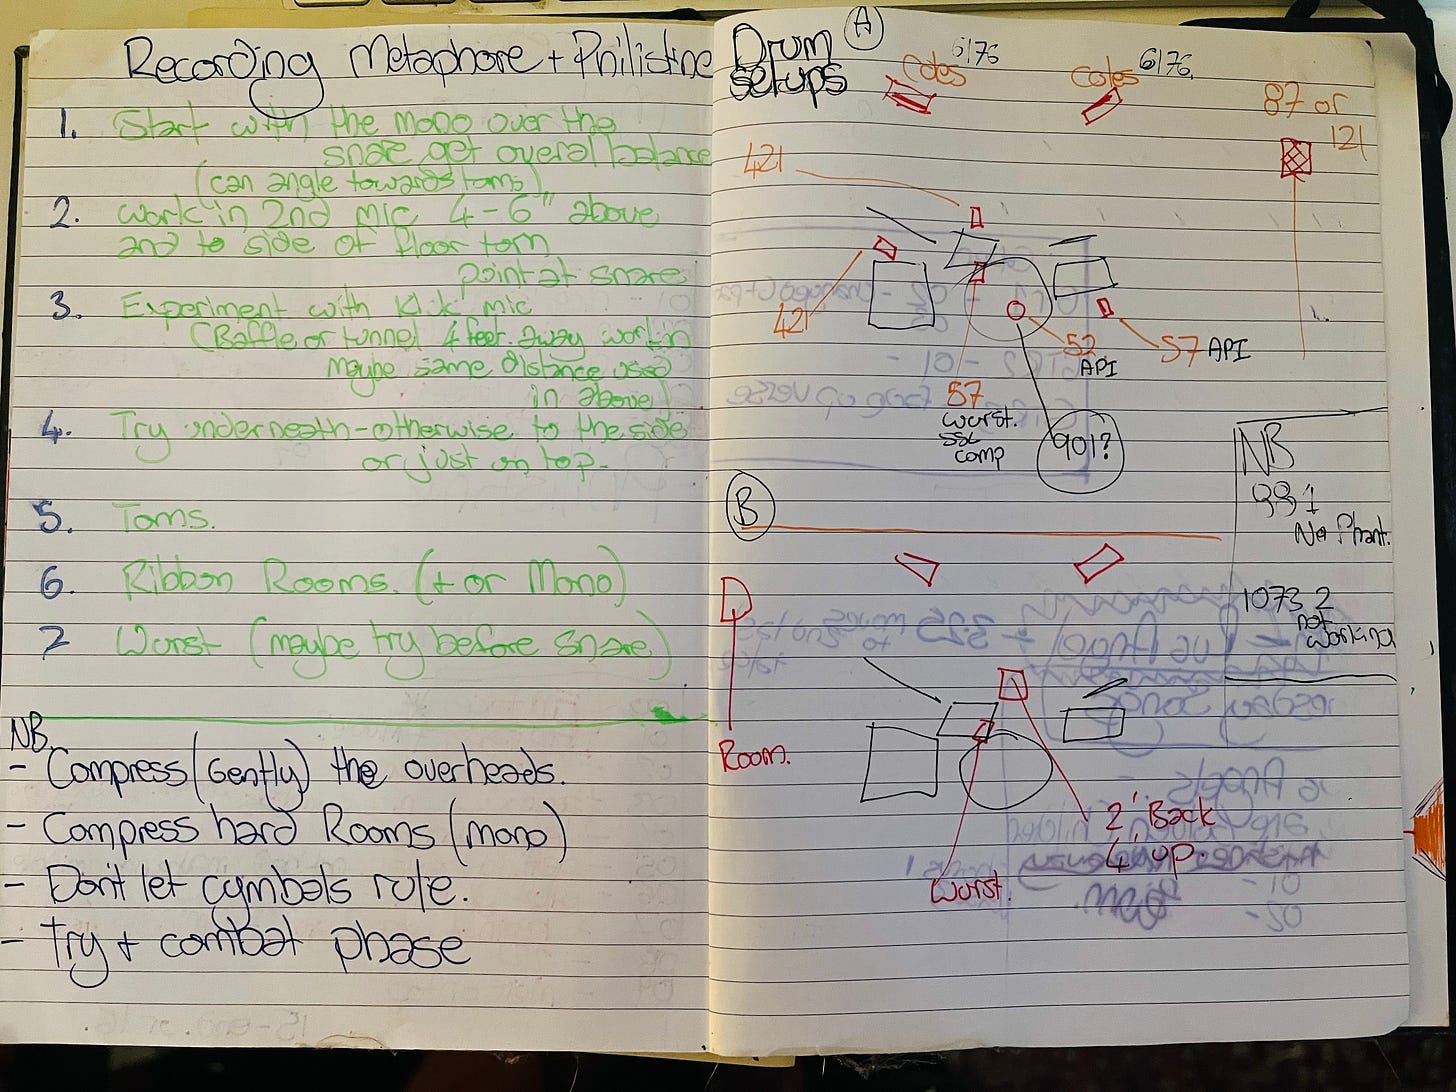 Recording Metaphore + Philistine
1. Start with the mono over the
snare get overall balance
(can angle towards toms)
2. Work in 2nd mic 4-6" above
and to side of floor tom
point at snare
3. Experiment with Kick mic
(Baffle or tunnel 4 feet away work in
maybe same distance used
in above)
4. Try underneath - otherwise to the side
or just on top -
5. Toms.
6. Ribbon Rooms. (+ or Mono)
7 Worst (maybe try before snare)
NB
- Compress (Gently) the overheads.
- Compress hard Rooms (mono)
- Don't let cymbals rule.
- Try + combat phase
Drum setups
A
Coles 6176
Coles 6176
87 or
121
421
421
52
API
57 API
57
Worst.
SSL
comp
901?
NB
No Phant.
1073 2
not
working
B
Room.
2' Back
4' up.
Worst.